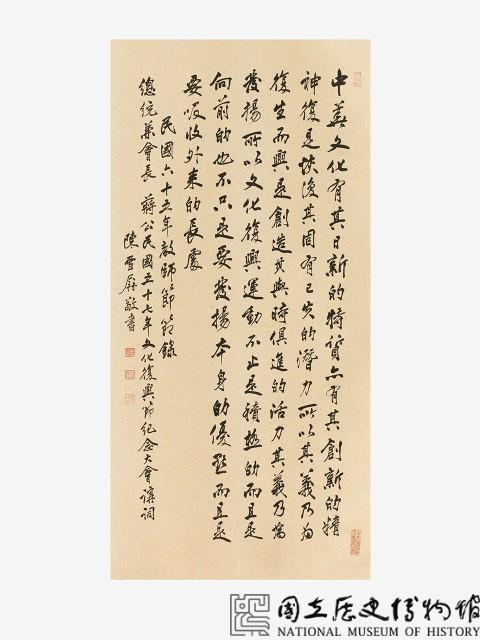 中華文化有其日新的特質亦有其創新的精
神復是恢復其固有已失的潛力所以其義乃為
復生而興是創造其與時俱進的活力其義乃為
發揚所以文化復興運動不止是積極的而且是
向前的也不只是要發揚本身的優點而且是
要吸收外來的長處
民國六十五年教師節節錄
總統兼會長 蔣公民國五十七年文化復興節紀念大會講詞
陳雪屏敬書
國立歷史博物館
NATIONAL MUSEUM OF HISTORY